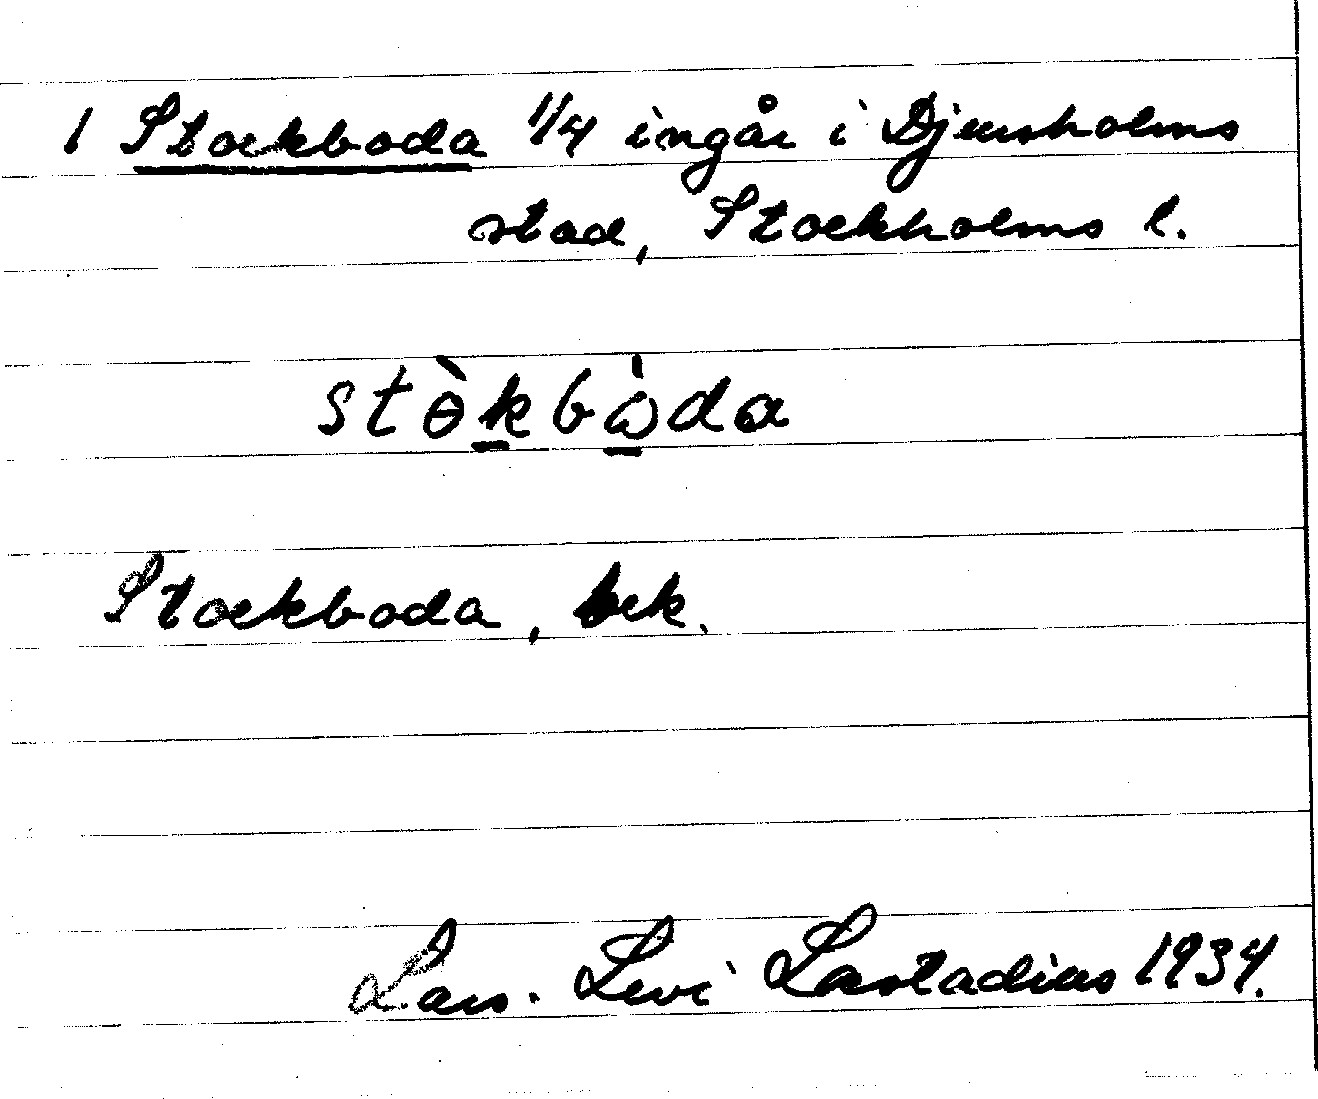 1 Stockboda 1/4 ingår i Djursholms
stad, Stockholms l.
stɵ̀kbὼda
Stockboda, bek.
Lars. Levi Læstadius 1934.